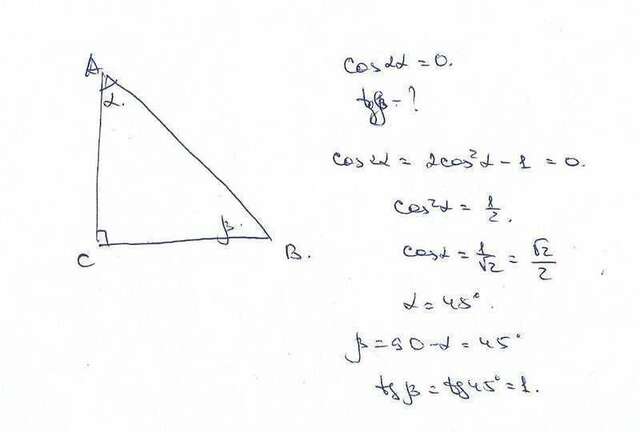 A
α.
C
β.
B.
cos2α = 0.
tgβ - ?
cos2α = 2cos²α - 1 = 0.
cos²α = 1/2.
cosα = 1/√2 = √2/2
α = 45°.
β = 90 - α = 45°
tgβ = tg45° = 1.